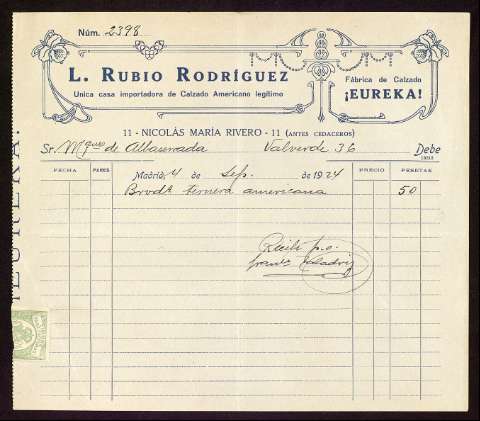 Núm. 2398
L. RUBIO RODRÍGUEZ
Unica casa importadora de Calzado Americano legítimo
Fábrica de Calzado
¡EUREKA!
11 - NICOLÁS MARÍA RIVERO - 11 (ANTES CEDACEROS)
Sr. Mques de Valverde 36 Debe
FECHA PARES Madrid, 4 de Sep. de 1924 PRECIO PESETAS
ternera americana 50
Recibí p.o.
EUREKA!